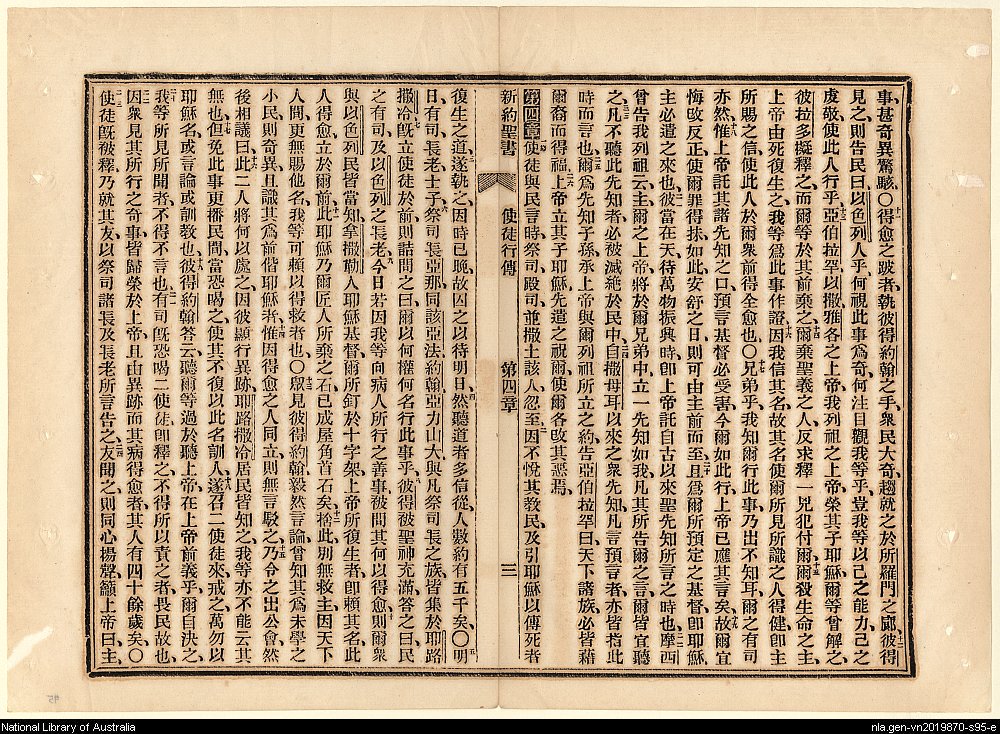 事、甚奇異驚駭、○得愈之跛者、執彼得約翰之手、衆民大奇、趨就之於所羅門之廊、彼得
見之、則告民曰、以色列人乎、何視此事爲奇、何注目觀我等乎、豈我等以己之能力、己之
虔敬、使此人行乎、亞伯拉罕以撒雅各之上帝、我列祖之上帝、榮其子耶穌、爾等曾解之、
彼拉多擬釋之、而爾等於其前棄之、爾棄聖義之人、反求釋一兇犯付爾、爾殺生命之主、
上帝由死復生之、我等爲此事作證、因我信其名、故其名使爾所見所識之人得健、卽主
所賜之信、使此人於爾衆前得全愈也、○兄弟乎、我知爾行此事、乃出不知、爾之有司
亦然、惟上帝託其諸先知之口、預言基督必受害、今爾如此行、上帝已應其言矣、故爾宜
悔改反正、使爾罪得抹、如此安舒之日、則可由主前而至、且爲爾所預定之基督、卽耶穌、
主必遣之來也、彼當在天、待萬物振興時、卽上帝託自古以來聖先知所言之時也、摩西
曾告我列祖云、主爾之上帝、將於爾兄弟中、立一先知如我、凡其所告爾之言、爾皆宜聽
之、凡不聽此先知者、必被滅絶於民中、自撒母耳以來之衆先知、凡言預言者、亦皆指此
時而言也、爾爲先知子孫、承上帝與爾列祖所立之約、告亞伯拉罕曰、天下諸族、必皆藉
爾裔而得福、上帝立其子耶穌、先遣之祝爾、使爾各改其惡焉、
第四章 使徒與民言時、祭司、殿司、並撒土該人忽至、因不悅其教民、及引耶穌以傳死者
新約聖書 使徒行傳 第四章 三
復生之道、遂執之、因時已晚、故囚之以待明日、然聽道者多信從、人數約有五千矣、○明
日、有司、長老、士子、祭司長亞那、同該亞法、約翰、亞力山大、與凡祭司長之族、皆集於耶路
撒冷、旣立使徒於前、則詰問之曰、爾以何權何名行此事乎、彼得被聖神充滿、答之曰、民
之有司、及以色列之長老、今日若因我等向病人所行之善事被問、其何以得愈、則爾衆
與以色列民皆當知、拿撒勒人耶穌基督、爾所釘於十字架、上帝所復生者、卽賴其名、此
人得愈、立於爾前、此耶穌乃爾匠人所棄之石、已成屋角首石矣、捨此別無救主、因天下
人間、更無賜他名、我等可賴以得救者也、○衆見彼得約翰毅然言論、曾知其爲未學之
小民、則奇異、且識其爲前偕耶穌者、惟因得愈之人同立、則無言駁之、乃令之出公會、然
後相議曰、此二人將何以處之、因彼顯行異跡、耶路撒冷居民皆知之、我等亦不能云其
無也、但免此事更播民間、當恐喝之、使其不復以此名訓人、遂召二使徒來、戒之萬勿以
耶穌名、或言論、或訓教也、彼得約翰答云、聽爾等過於聽上帝、在上帝前義乎、爾自決之、
我等所見所聞者、不得不言也、有司旣恐喝二使徒、卽釋之、不得所以責之者、畏民故也、
因衆見其所行之奇事、皆歸榮於上帝、且由異跡而其病得愈者、其人有四十餘歲矣、○
使徒旣被釋、乃就其友、以祭司諸長及長老所言告之、友聞之、則同心揚聲籲上帝曰、主
National Library of Australia
nla.gen-vn2019870-s95-e